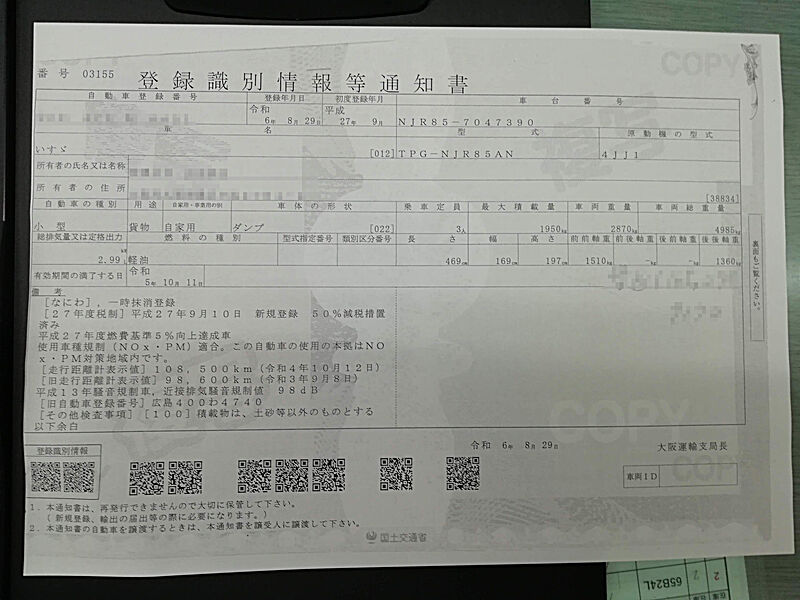 番号 03155
登録識別情報等通知書
COPY
自動車登録番号 登録年月日 初度登録年月 車台番号
令和 6年 8月 29日 平成 27年 9月 NJR85-7047390
車名 型式 原動機の型式
いすゞ [012] TPG-NJR85AN 4JJ1
所有者の氏名又は名称
所有者の住所
[38834]
自動車の種別 用途 自家用・事業用の別 車体の形状 乗車定員 最大積載量 車両重量 車両総重量
小型 貨物 自家用 ダンプ [022] 3人 1950kg 2870kg 4985kg
総排気量又は定格出力 燃料の種別 型式指定番号 類別区分番号 長さ 幅 高さ 前前軸重 前後軸重 後前軸重 後後軸重
2.99L 軽油 469cm 169cm 197cm 1510kg -kg -kg 1360kg
有効期間の満了する日 令和 5年 10月 11日
裏面もご覧ください。
備考
[なにわ],一時抹消登録
[27年度税制]平成27年9月10日 新規登録 50%減税措置
済み
平成27年度燃費基準5%向上達成車
使用車種規制(NOx・PM)適合。この自動車の使用の本拠はNO
x・PM対策地域内です。
[走行距離計表示値]108,500km(令和4年10月12日)
[旧走行距離計表示値]98,600km(令和3年9月8日)
平成13年騒音規制車,近接排気騒音規制値 98dB
[旧自動車登録番号]広島400わ4740
[その他検査事項][100]積載物は、土砂等以外のものとする
以下余白
登録識別情報
令和 6年 8月 29日 大阪運輸支局長
車両ID
COPY
1.本通知書は、再発行できませんので大切に保管して下さい。
(新規登録、輸出の届出等の際に必要になります。)
2.本通知書の自動車を譲渡するときは、本通知書を譲受人に譲渡して下さい。
国土交通省
65B24L